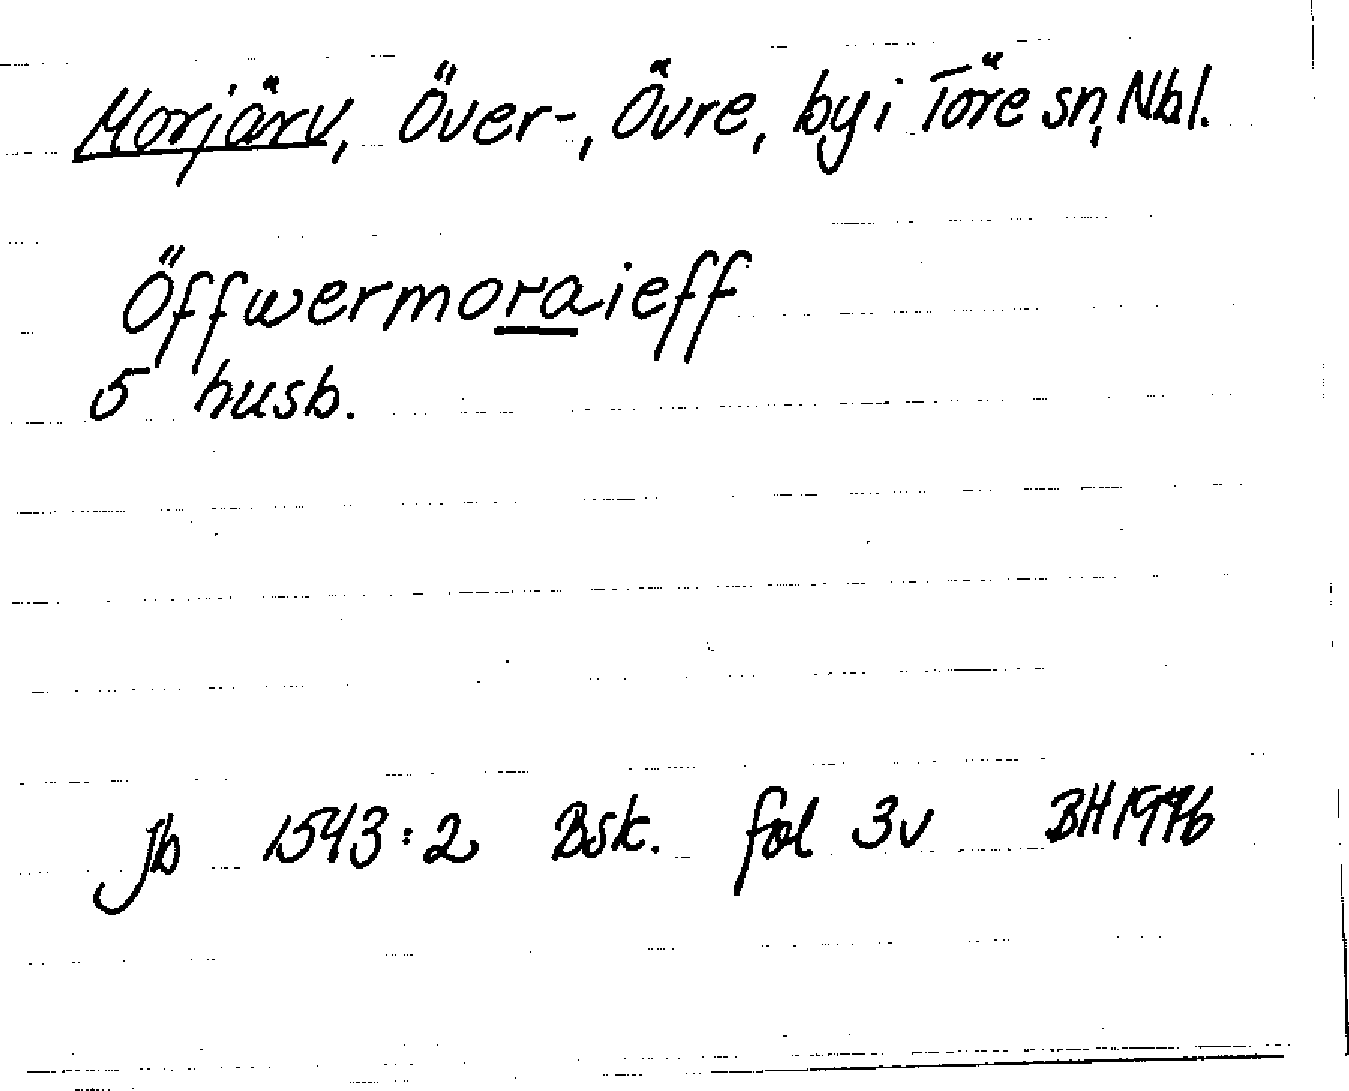 Morjärv, Över-, Övre, by i Töre sn, Nbl.
Öffwermoraieff
5 husb.
Jb 1543:2 Bsk. fol 3v BH 1976